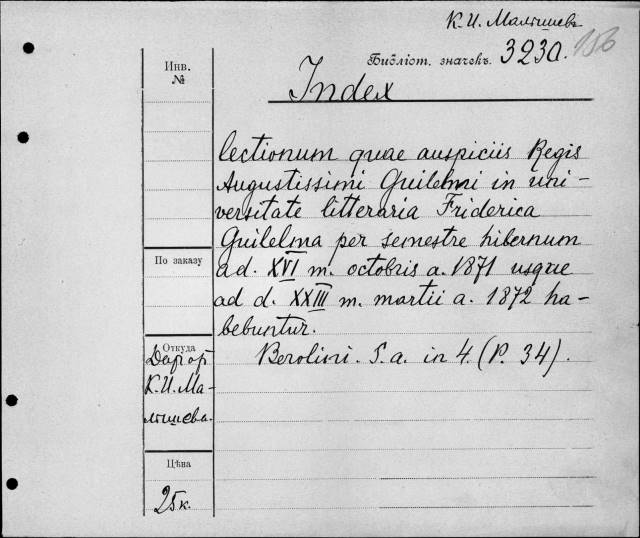 К.И. Малышевъ
Инв.
№
Библіот. значекъ. 3230. 156
Index
lectionum quae auspiciis Regis
Augustissimi Guilelmi in uni-
versitate litteraria Friderica
Guilelma per semestre hibernum
ad. XVI m. octobris a. 1871 usque
ad d. XXIII m. martii a. 1872 ha-
bebuntur.
Berolini. S. a. in 4. (P. 34).
По заказу
Откуда
Даръ отъ
К.И. Ма-
лышева.
Цѣна
25к.